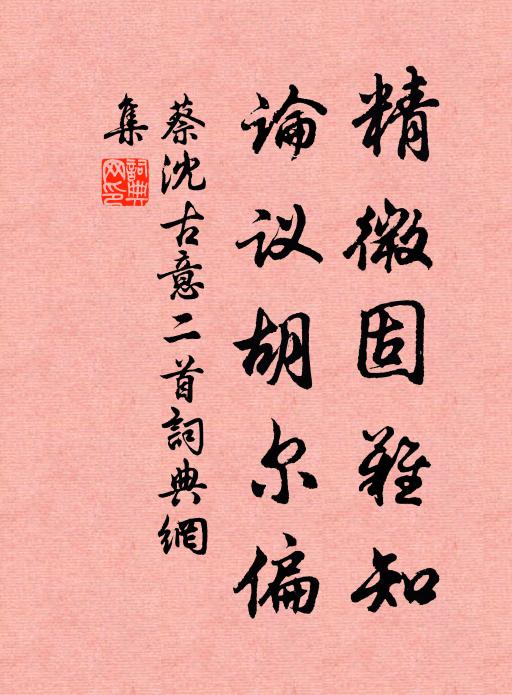 精微固難知
论议胡尔偏
蔡沈古意二首詞典網
集
詞典
网印